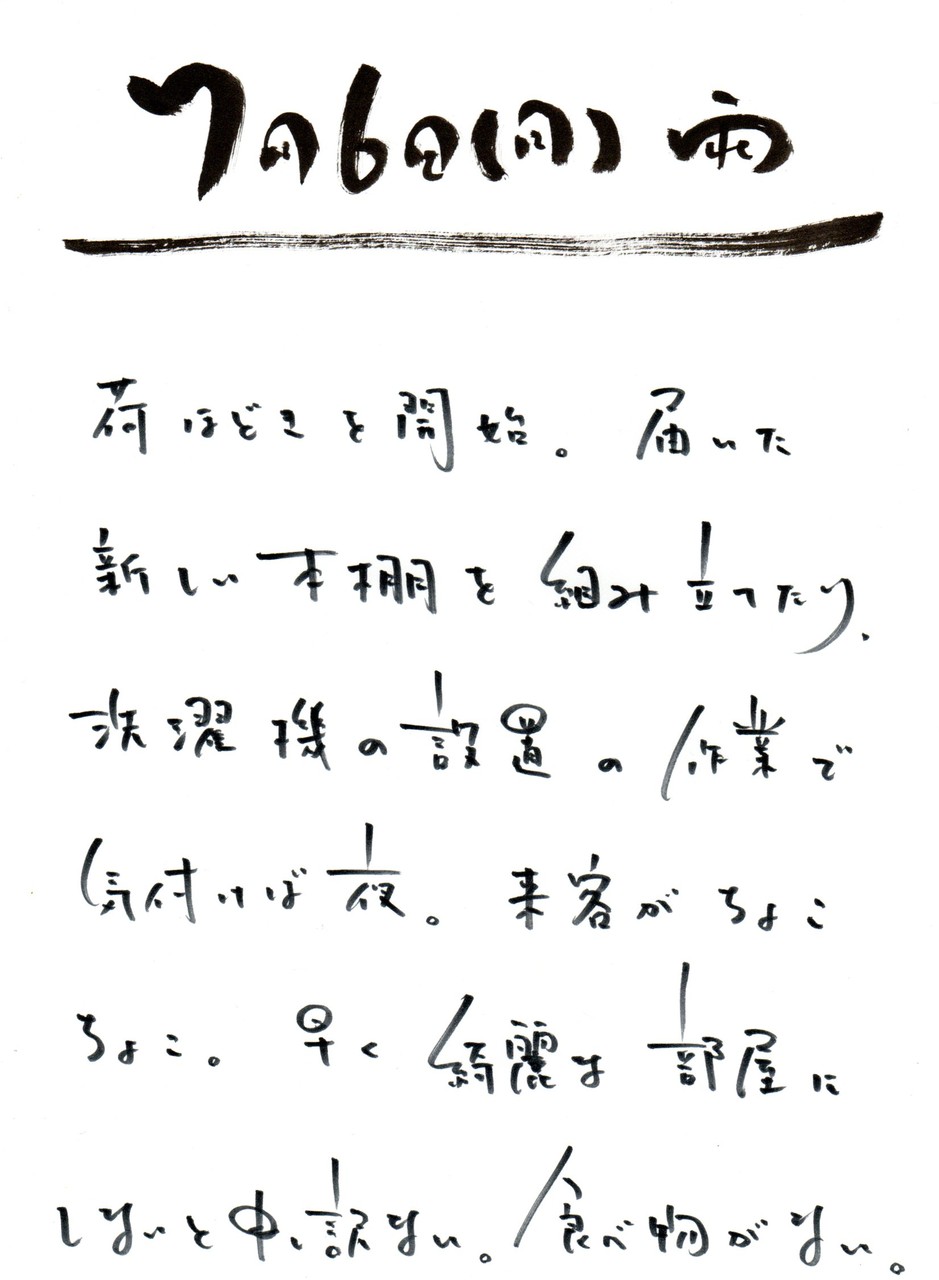 7月6日(月) 雨
荷ほどきを開始。届いた
新しい本棚を組み立てたり、
洗濯機の設置の作業で
気付けば夜。来客がちょこ
ちょこ。早く綺麗な部屋に
しないと申し訳ない。食べ物がない。